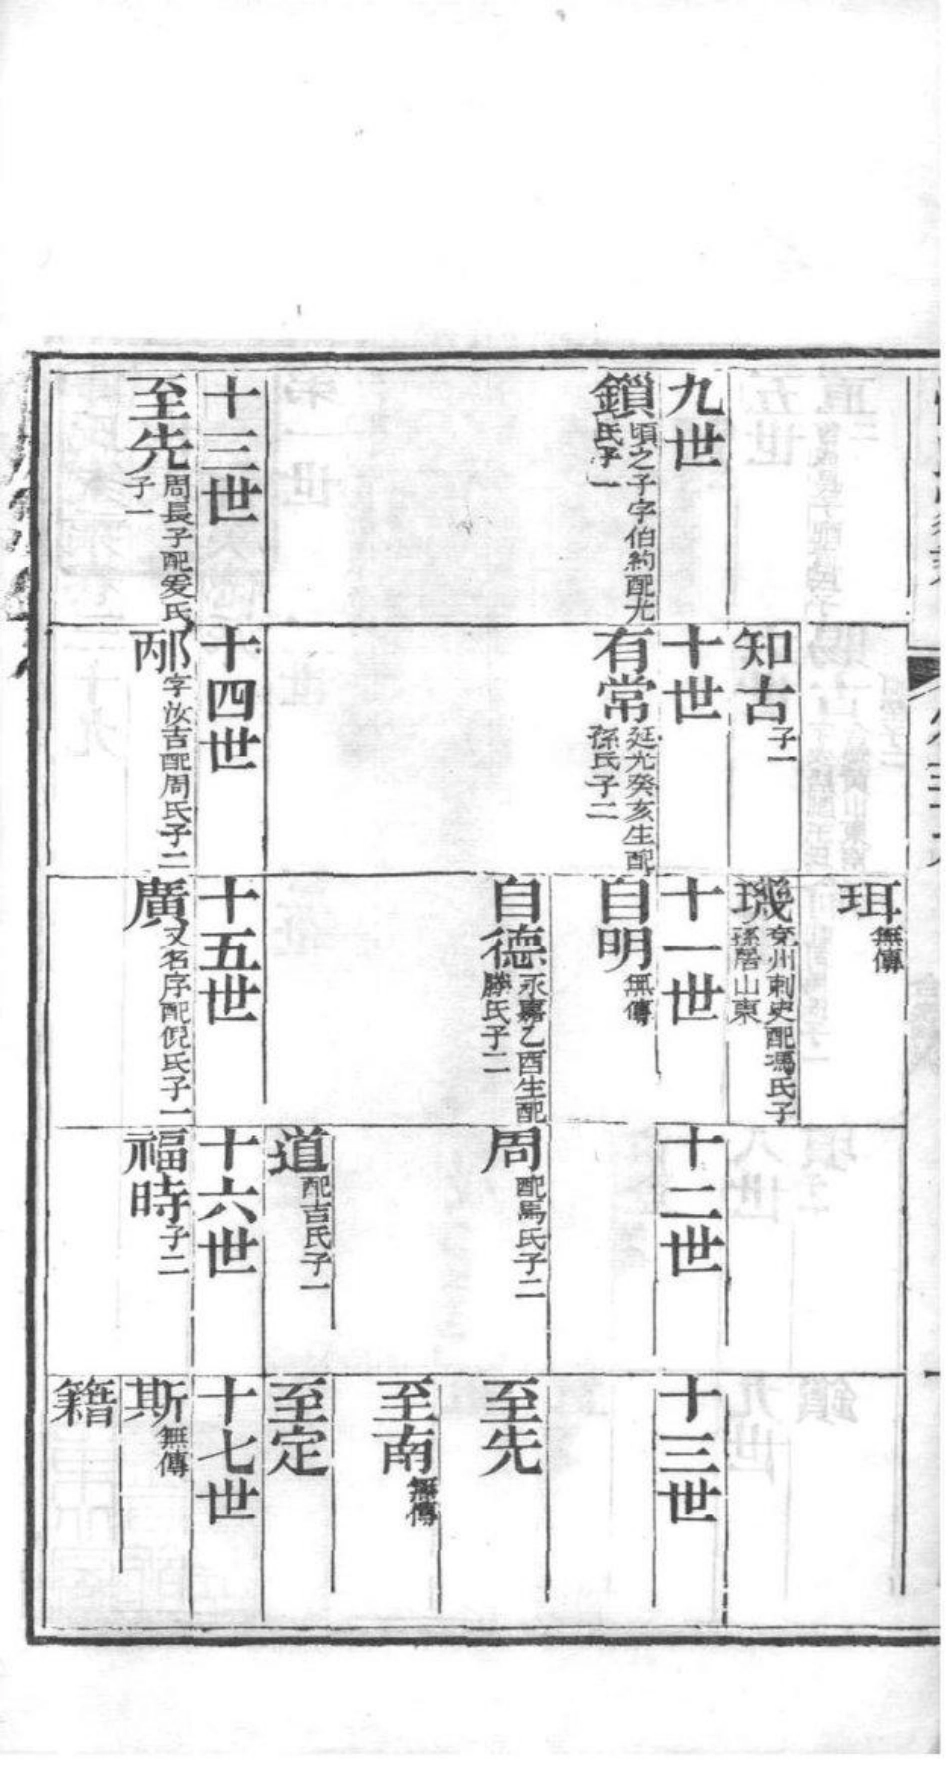 知古子一
珥無傳
璣兖州刺史配馮氏子
孫居山東
九世
十世
十一世
十二世
十三世
鎖頃之子字伯約配尤
氏子一
有常延光癸亥生配
孫氏子二
自明無傳
自德永嘉乙酉生配
滕氏子二
周配馬氏子二
至先
至南無傳
道配吉氏子一
至定
十三世
十四世
十五世
十六世
十七世
至先周長子配爰氏
子一
邴字汝吉配周氏子二
廣又名序配倪氏子一
福時子二
斯無傳
籍